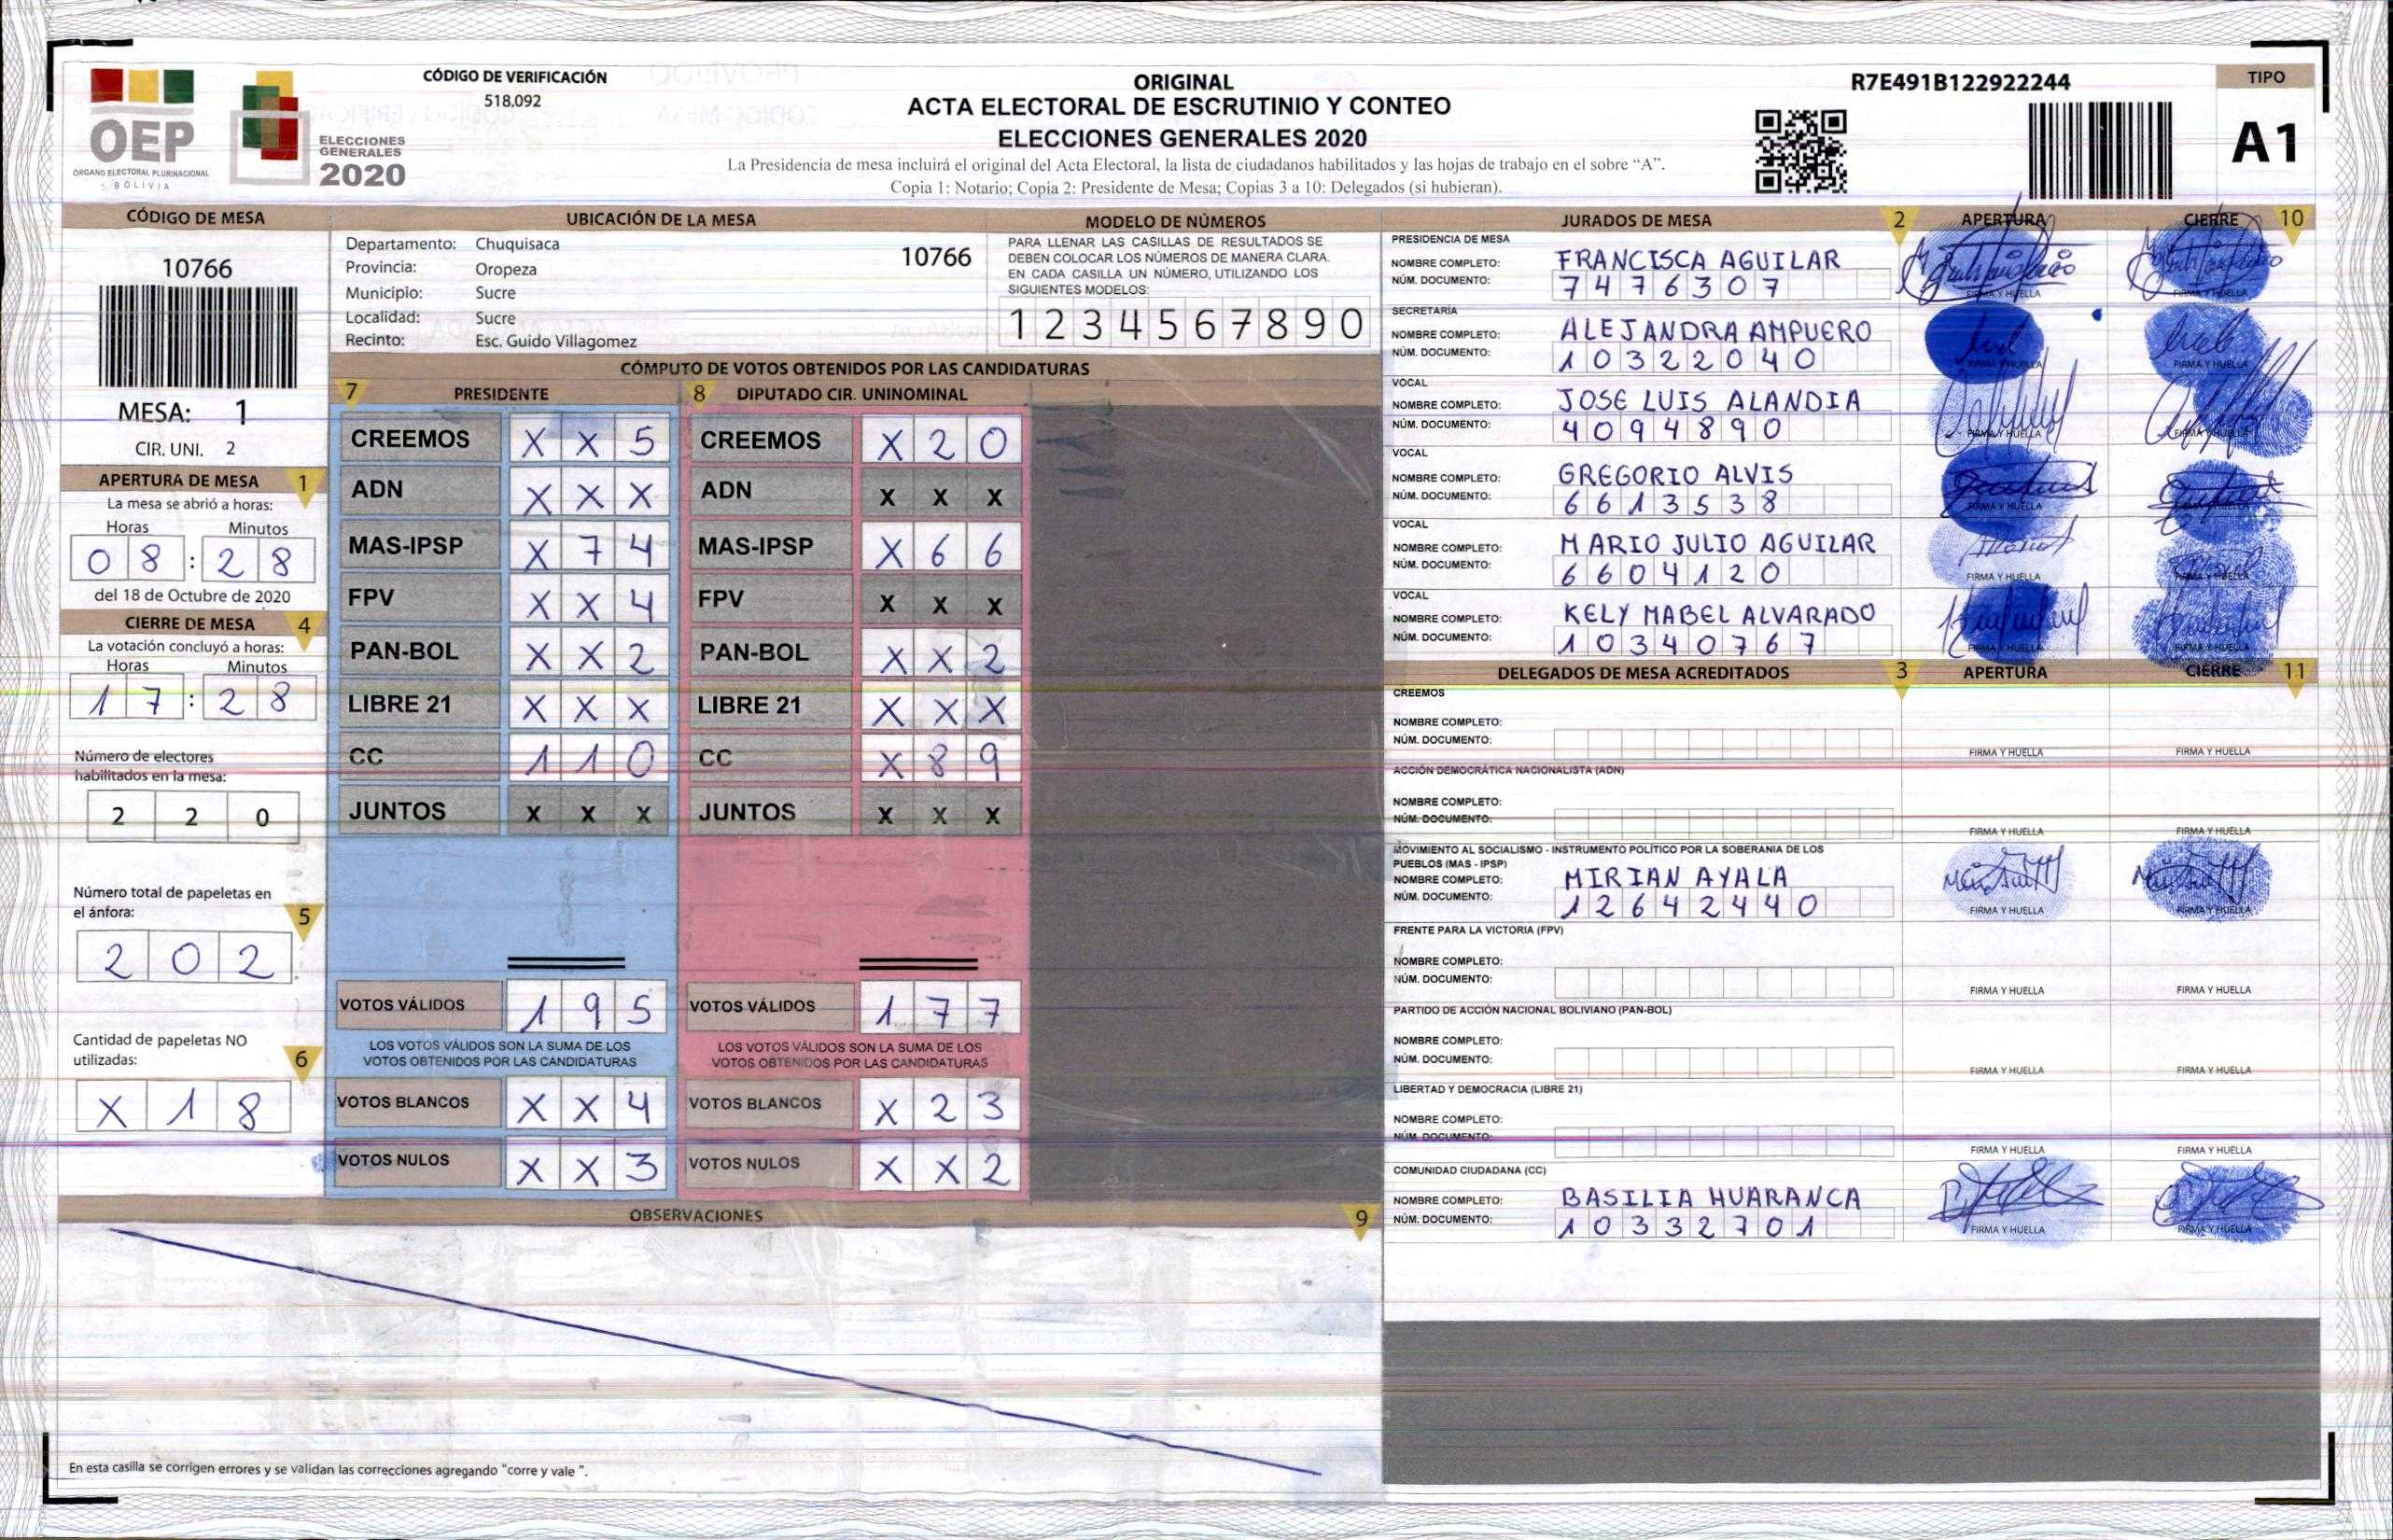 OEP
ÓRGANO ELECTORAL PLURINACIONAL
BOLIVIA
ELECCIONES
GENERALES
2020
CÓDIGO DE VERIFICACIÓN
518.092
ORIGINAL
ACTA ELECTORAL DE ESCRUTINIO Y CONTEO
ELECCIONES GENERALES 2020
La Presidencia de mesa incluirá el original del Acta Electoral, la lista de ciudadanos habilitados y las hojas de trabajo en el sobre “A”.
Copia 1: Notario; Copia 2: Presidente de Mesa; Copias 3 a 10: Delegados (si hubieran).
R7E491B122922244
TIPO
A1
CÓDIGO DE MESA
10766
MESA: 1
CIR. UNI. 2
APERTURA DE MESA 1
La mesa se abrió a horas:
Horas Minutos
08 : 28
del 18 de Octubre de 2020
CIERRE DE MESA 4
La votación concluyó a horas:
Horas Minutos
17 : 28
Número de electores
habilitados en la mesa:
2 2 0
Número total de papeletas en
el ánfora: 5
2 0 2
Cantidad de papeletas NO
utilizadas: 6
X 1 8
UBICACIÓN DE LA MESA
Departamento: Chuquisaca 10766
Provincia: Oropeza
Municipio: Sucre
Localidad: Sucre
Recinto: Esc. Guido Villagomez
MODELO DE NÚMEROS
PARA LLENAR LAS CASILLAS DE RESULTADOS SE
DEBEN COLOCAR LOS NÚMEROS DE MANERA CLARA.
EN CADA CASILLA UN NÚMERO, UTILIZANDO LOS
SIGUIENTES MODELOS:
1 2 3 4 5 6 7 8 9 0
CÓMPUTO DE VOTOS OBTENIDOS POR LAS CANDIDATURAS
7 PRESIDENTE 8 DIPUTADO CIR. UNINOMINAL
CREEMOS X X 5 CREEMOS X 2 0
ADN X X X ADN X X X
MAS-IPSP X 7 4 MAS-IPSP X 6 6
FPV X X 4 FPV X X X
PAN-BOL X X 2 PAN-BOL X X 2
LIBRE 21 X X X LIBRE 21 X X X
CC 1 1 0 CC X 8 9
JUNTOS X X X JUNTOS X X X
VOTOS VÁLIDOS 1 9 5 VOTOS VÁLIDOS 1 7 7
LOS VOTOS VÁLIDOS SON LA SUMA DE LOS LOS VOTOS VÁLIDOS SON LA SUMA DE LOS
VOTOS OBTENIDOS POR LAS CANDIDATURAS VOTOS OBTENIDOS POR LAS CANDIDATURAS
VOTOS BLANCOS X X 4 VOTOS BLANCOS X 2 3
VOTOS NULOS X X 3 VOTOS NULOS X X 2
OBSERVACIONES 9
En esta casilla se corrigen errores y se validan las correcciones agregando "corre y vale ".
JURADOS DE MESA 2 APERTURA CIERRE 10
PRESIDENCIA DE MESA
NOMBRE COMPLETO: FRANCISCA AGUILAR
NÚM. DOCUMENTO: 7476307 FIRMA Y HUELLA FIRMA Y HUELLA
SECRETARÍA
NOMBRE COMPLETO: ALEJANDRA AMPUERO
NÚM. DOCUMENTO: 10322040 FIRMA Y HUELLA FIRMA Y HUELLA
VOCAL
NOMBRE COMPLETO: JOSE LUIS ALANDIA
NÚM. DOCUMENTO: 4094890 FIRMA Y HUELLA FIRMA Y HUELLA
VOCAL
NOMBRE COMPLETO: GREGORIO ALVIS
NÚM. DOCUMENTO: 6613538 FIRMA Y HUELLA FIRMA Y HUELLA
VOCAL
NOMBRE COMPLETO: MARIO JULIO AGUILAR
NÚM. DOCUMENTO: 6604120 FIRMA Y HUELLA FIRMA Y HUELLA
VOCAL
NOMBRE COMPLETO: KELY MABEL ALVARADO
NÚM. DOCUMENTO: 10340767 FIRMA Y HUELLA FIRMA Y HUELLA
DELEGADOS DE MESA ACREDITADOS 3 APERTURA CIERRE 11
CREEMOS
NOMBRE COMPLETO:
NÚM. DOCUMENTO: FIRMA Y HUELLA FIRMA Y HUELLA
ACCIÓN DEMOCRÁTICA NACIONALISTA (ADN)
NOMBRE COMPLETO:
NÚM. DOCUMENTO: FIRMA Y HUELLA FIRMA Y HUELLA
MOVIMIENTO AL SOCIALISMO - INSTRUMENTO POLÍTICO POR LA SOBERANIA DE LOS
PUEBLOS (MAS - IPSP)
NOMBRE COMPLETO: MIRIAN AYALA
NÚM. DOCUMENTO: 12642440 FIRMA Y HUELLA FIRMA Y HUELLA
FRENTE PARA LA VICTORIA (FPV)
NOMBRE COMPLETO:
NÚM. DOCUMENTO: FIRMA Y HUELLA FIRMA Y HUELLA
PARTIDO DE ACCIÓN NACIONAL BOLIVIANO (PAN-BOL)
NOMBRE COMPLETO:
NÚM. DOCUMENTO: FIRMA Y HUELLA FIRMA Y HUELLA
LIBERTAD Y DEMOCRACIA (LIBRE 21)
NOMBRE COMPLETO:
NÚM. DOCUMENTO: FIRMA Y HUELLA FIRMA Y HUELLA
COMUNIDAD CIUDADANA (CC)
NOMBRE COMPLETO: BASILIA HUARANCA
NÚM. DOCUMENTO: 10332701 FIRMA Y HUELLA FIRMA Y HUELLA